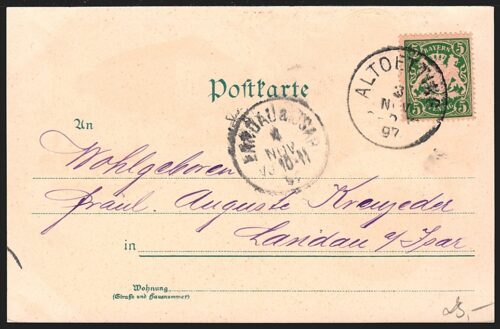 5 BAYERN 5
5 PFENNIG 5
ALTOETTING
3
NOV
97
Postkarte
LANDAU a. ISAR
4
NOV
10-11
97
An
Wohlgeboren
Fräul. Auguste Kreuzeder
in Landau a/Isar
Wohnung
(Straße und Hausnummer)
25,-